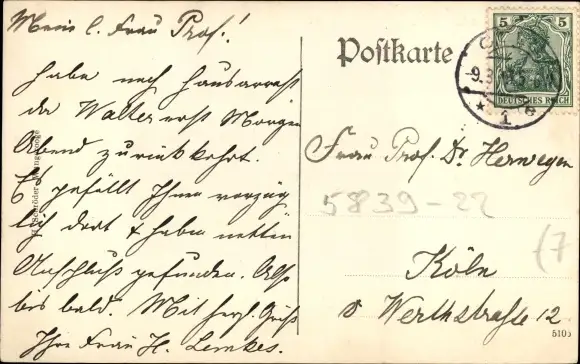 Meine l. Frau Prof.!
habe noch Hausarrest
da Walter erst Morgen
Abend zurückkehrt.
Es gefällt Ihnen vorzüg-
lich dort & haben netten
Anschluß gefunden. Also
bis bald. Mit herzl. Gruß
Ihre Frau H. Lemkes.
Postkarte
5 5
DEUTSCHES REICH
-9.3.
1
Frau Prof. Dr. Herwegen
5839-22
(7
Köln
Werthstraße 12
5105